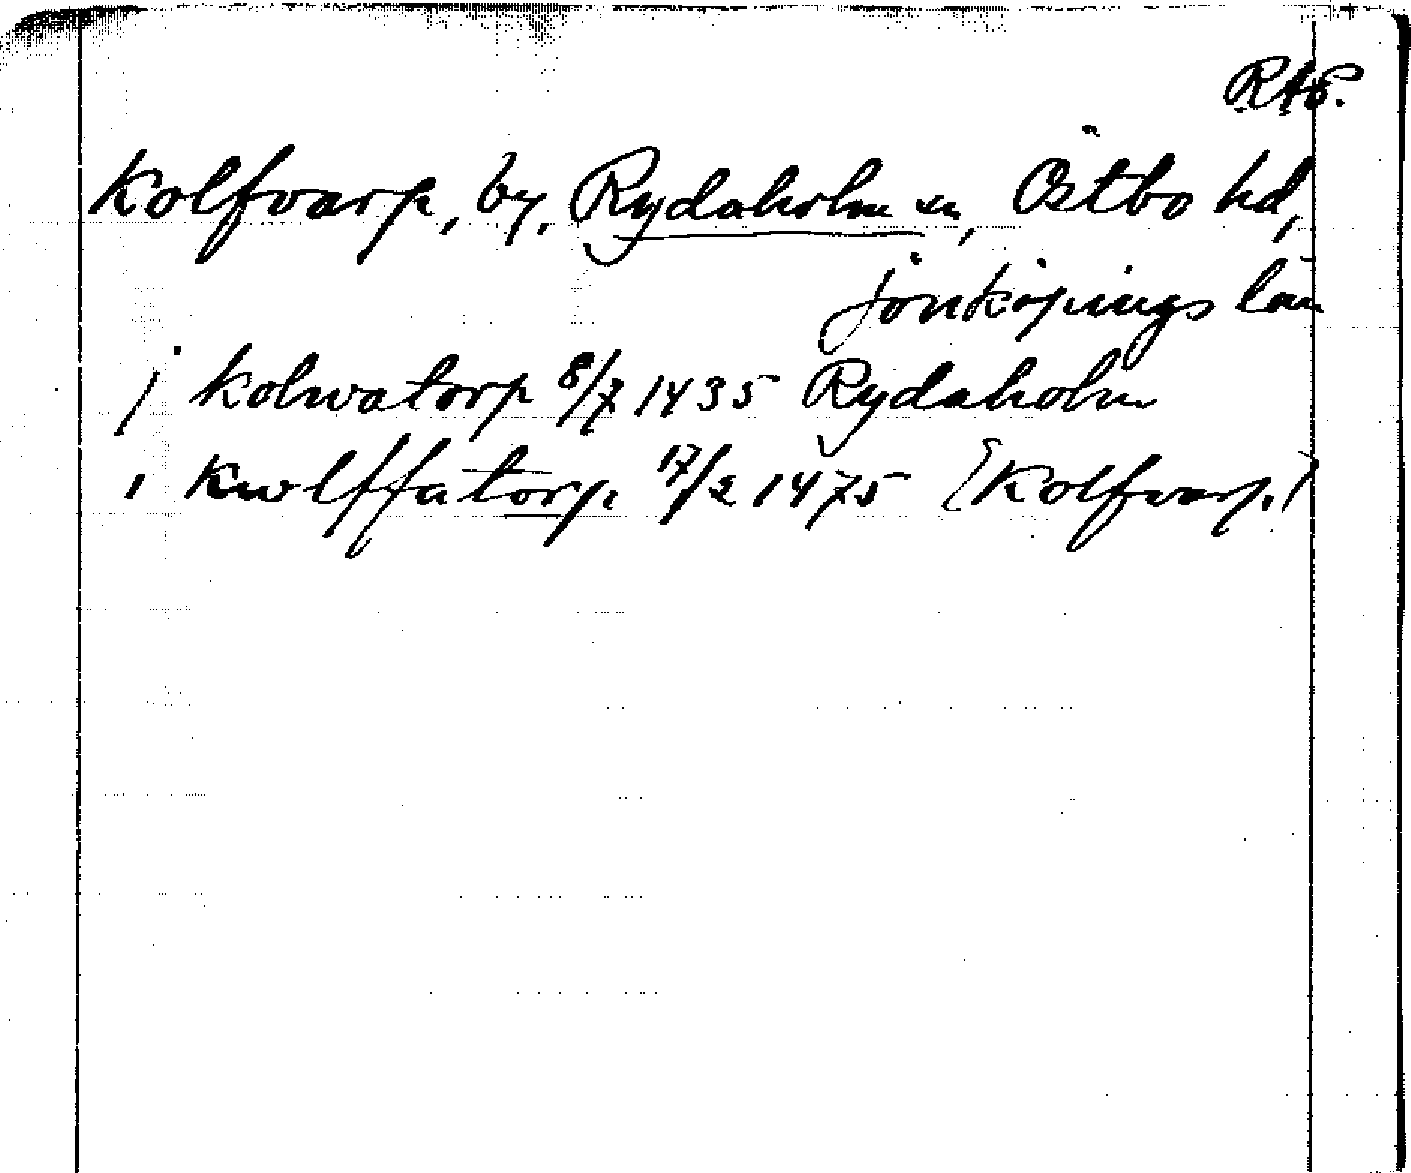 RAP.
Kolfvarp, by, Rydaholm sn, Östbo hd,
Jönköpings län
j kolwatorp 8/7 1435 Rydaholm
i Kwlffatorp 17/2 1475 (Kolfvarp)